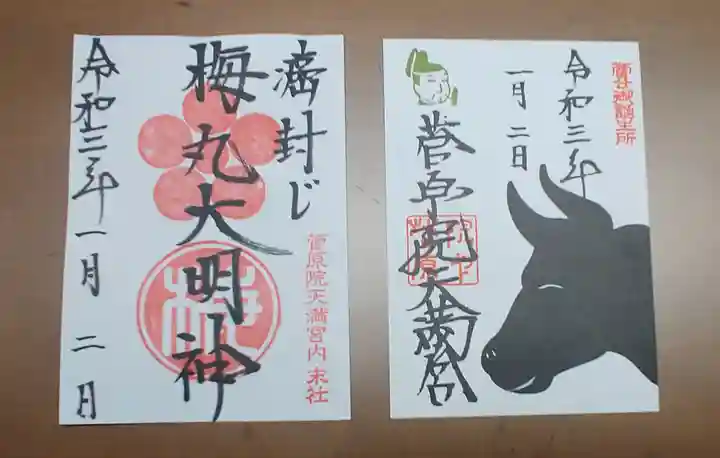 癌封じ
梅丸大明神
菅原院天満宮内 末社
令和三年一月二日
菅公御誕生所
令和三年
一月二日
菅原院天満宮